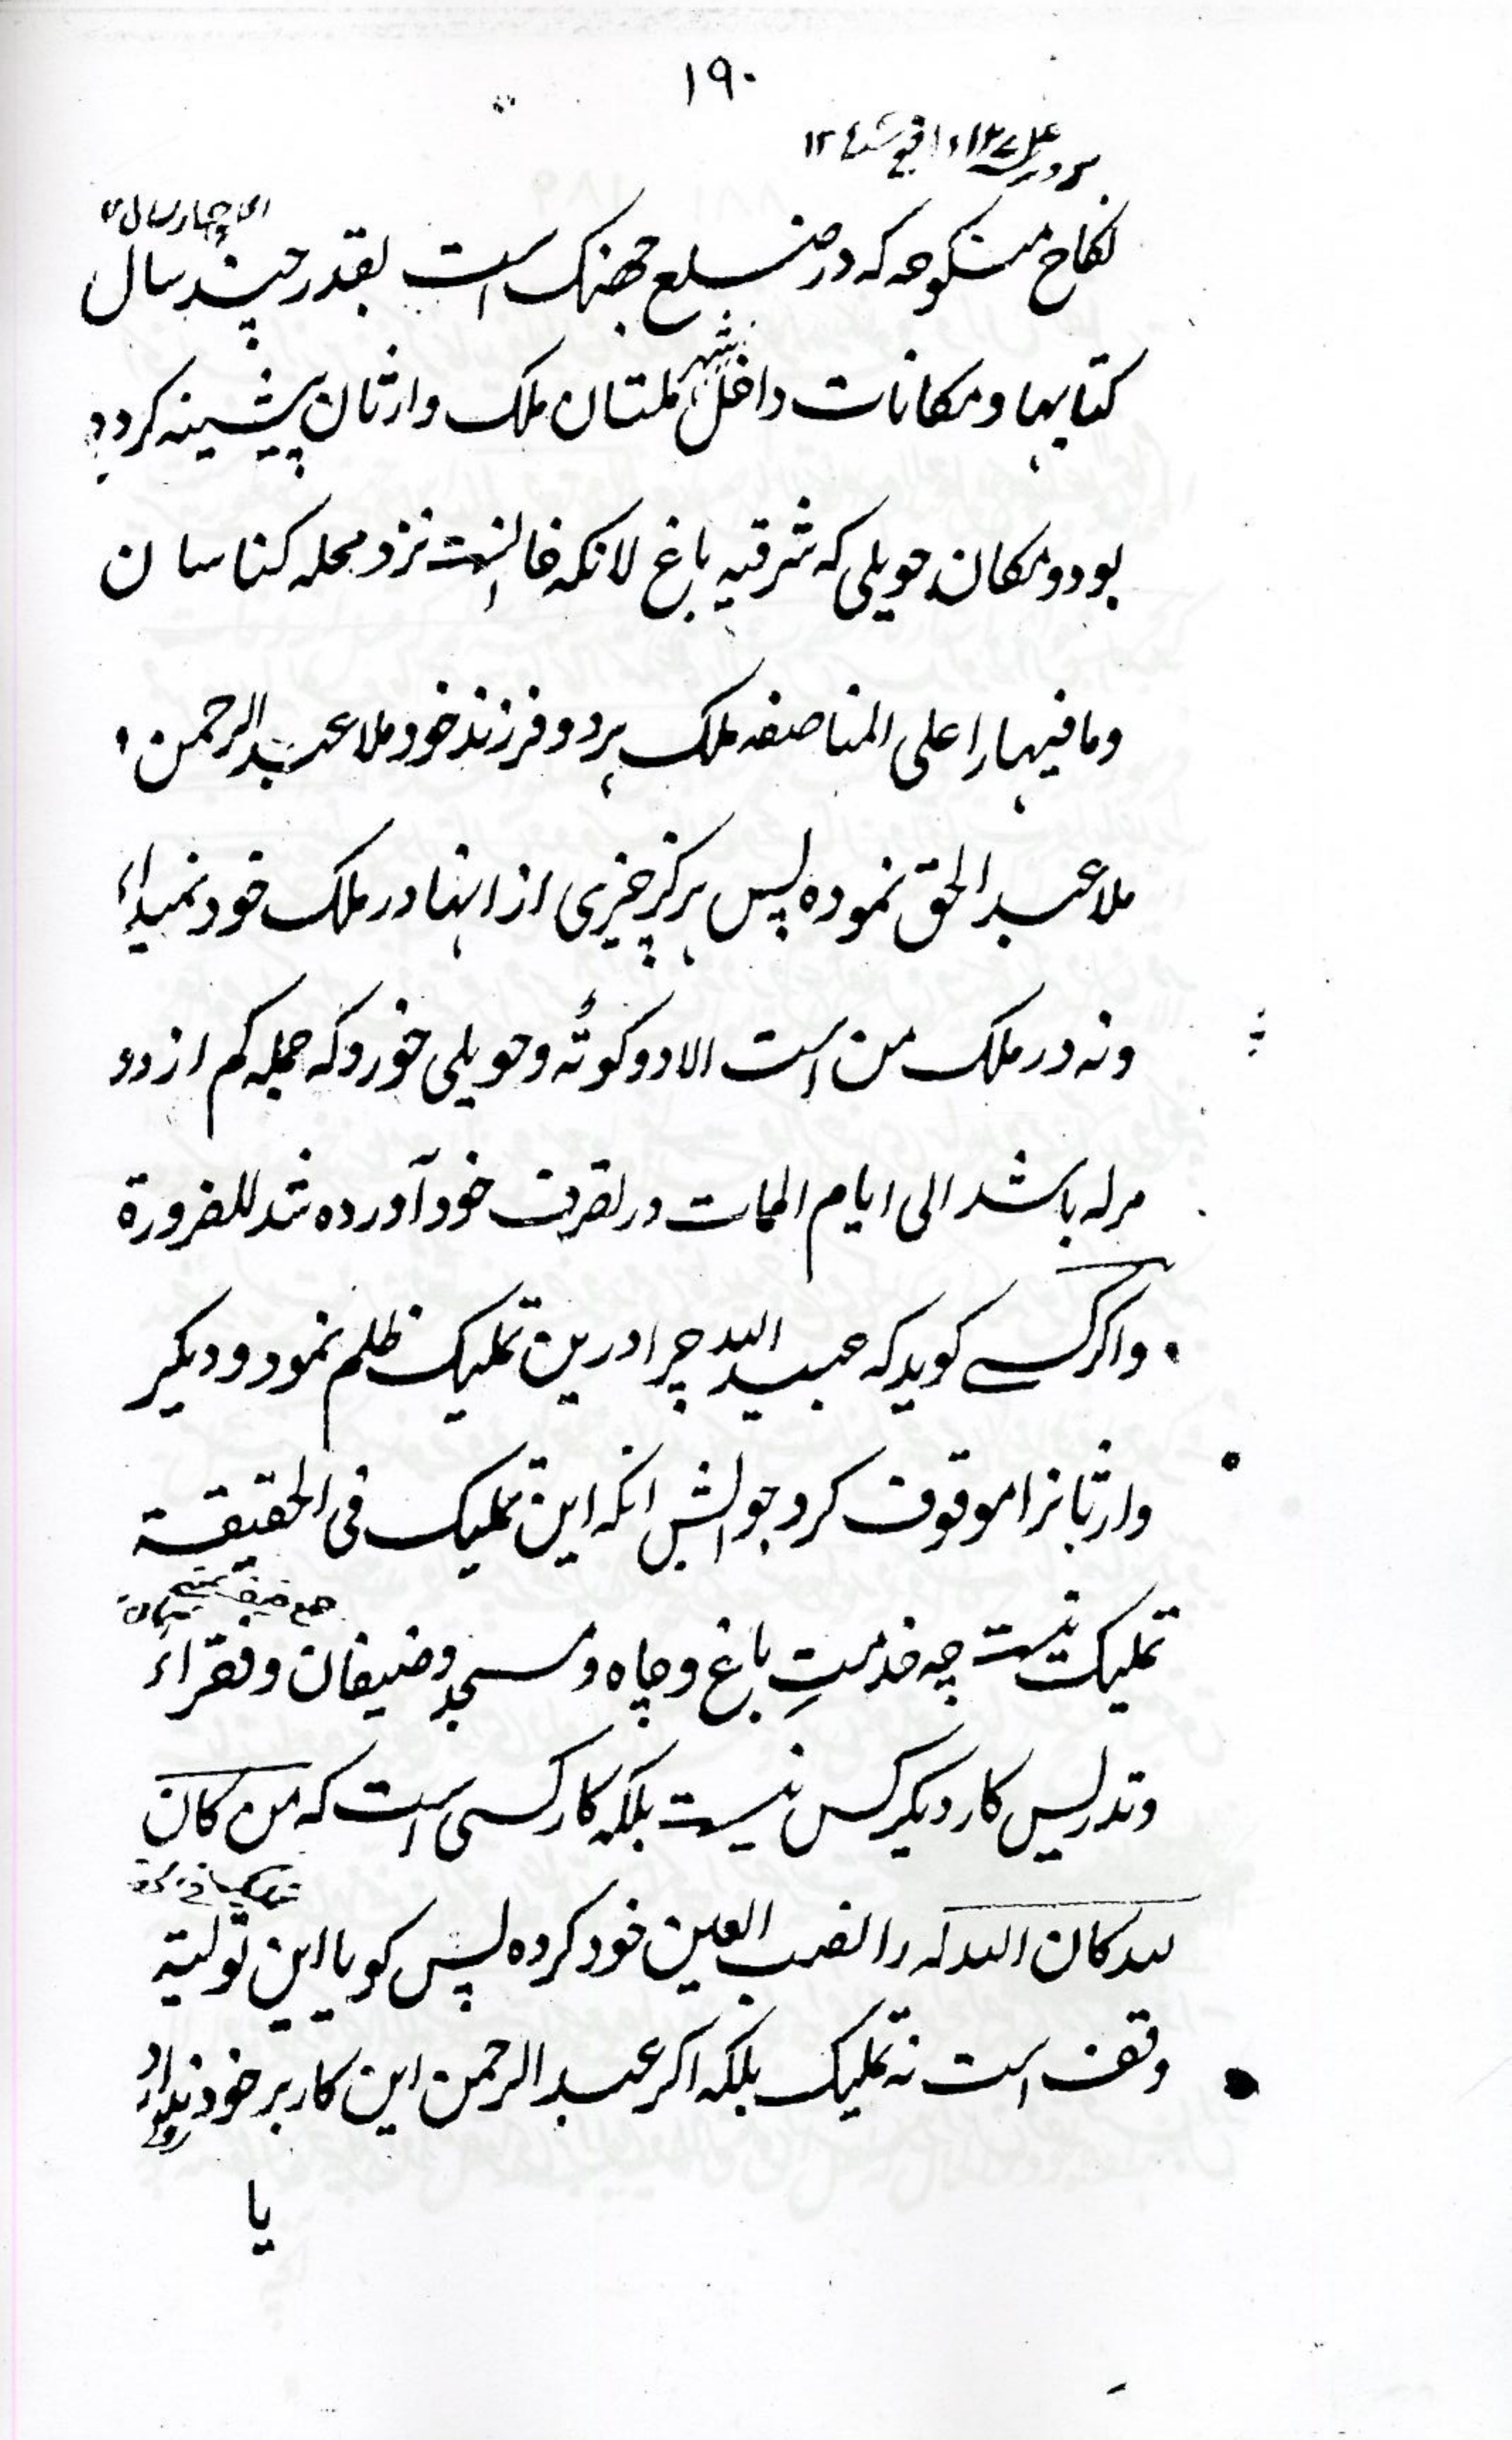 ۱۹۰
نکاح منکوحہ کہ در ضلع جھنک است بقدر چند سال
کتابہا و مکانات داخل شہر ملتان ملک وارثان پیشینہ کردہ
بود و مکان حویلی کہ شرقیہ باغ لانکہ خان است نزد محلہ کناسان
و ما فیہا را علی المناصفہ ملک ہر دو فرزند خود ملا عبد الرحمن و
ملا عبد الحق نمودہ پس ہرکز چیزی از اینہا در ملک خود نمیدانم
و نہ در ملک من است الا دو کوٹہ و حویلی خورد کہ جملہ کم از دو
مرلہ باشد الی ایام الممات در تصرف خود آوردہ شد للضرورة
و اکر کسے کوید کہ عبید اللہ چرا درین تملیک ظلم نمود و دیکر
وارثانرا موقوف کرد جوابش انکہ این تملیک فی الحقیقة
تملیک نیست چہ خدمتِ باغ و چاہ و مسجد و ضیفان و فقراء
و تدریس کار دیکر کس نیست بلکہ کار کسی است کہ من کان
للہ کان اللہ لہ را نصب العین خود کردہ پس کویا این تولیة
وقف است نہ تملیک بلکہ اکر عبد الرحمن این کار بر خود
یا